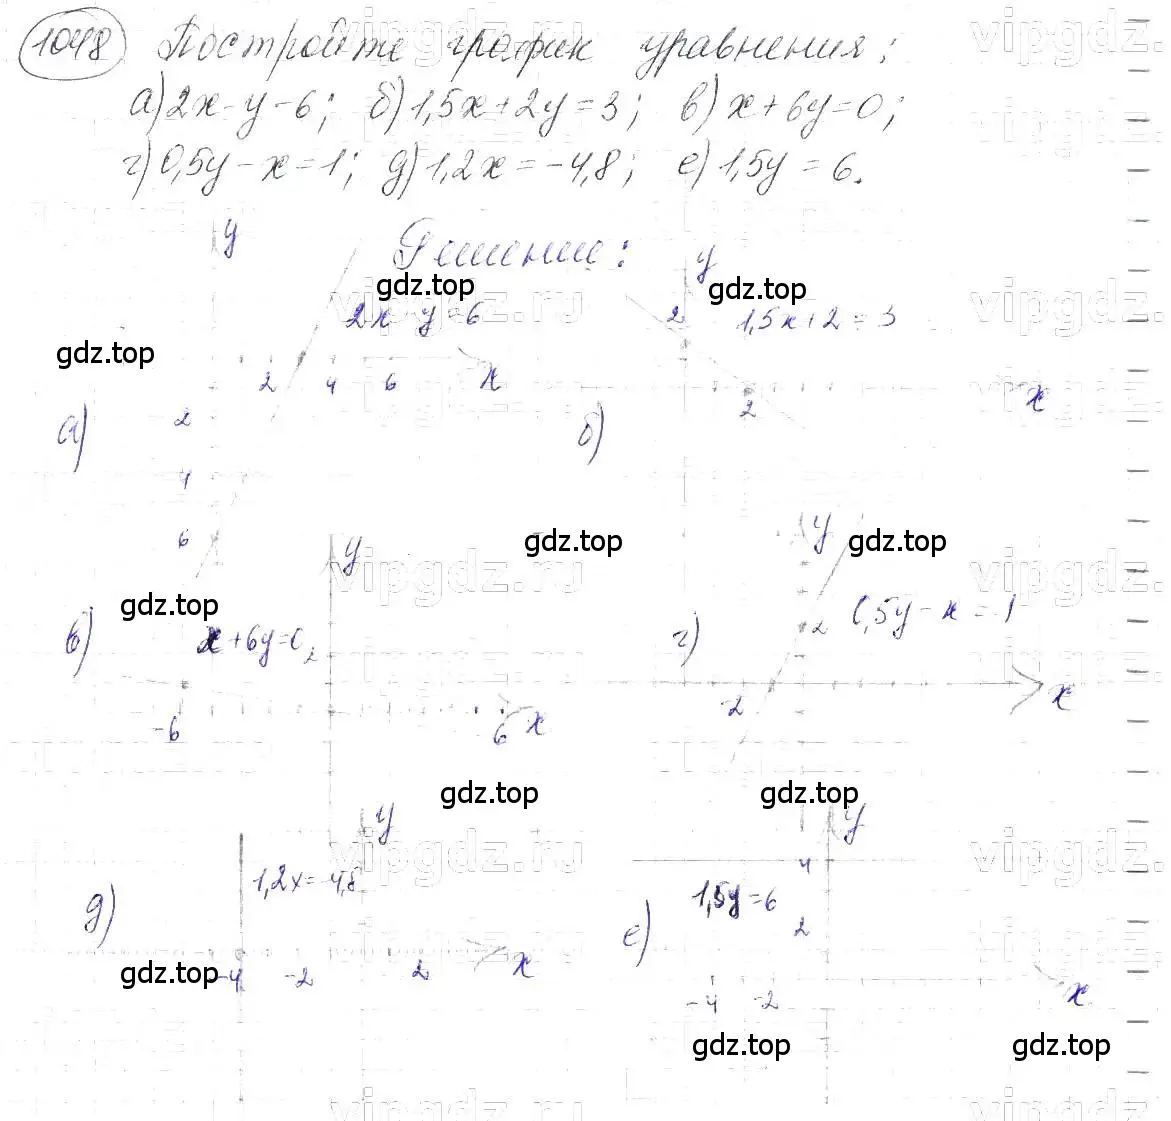 1048 Постройте график уравнения:
а) 2x - y - 6; б) 1,5x + 2y = 3; в) x + 6y = 0;
г) 0,5y - x = 1; д) 1,2x = -4,8; е) 1,5y = 6.
Решение:
y y
gdz.top gdz.top
2x y = 6 2 1,5x + 2 = 3
vipgdz.ru vipgdz.
gdz.top
2 4 6 x x
2 2
а) б)
4
6 y gdz.top y gdz.top
vipgdz.ru vipgdz.
gdz.top
в) x + 6y = 0 2 г) 2 0,5y - x = 1
-6 6 x -2 x
gdz.top gdz.top
y y
vipgdz.ru vipgdz.
1,2x = -4,8 4
1,5y = 6
д) е) 2
gdz.top -4 -2 2 x
-4 -2 x
gdz.top gdz.top
vipgdz.ru vipgdz.